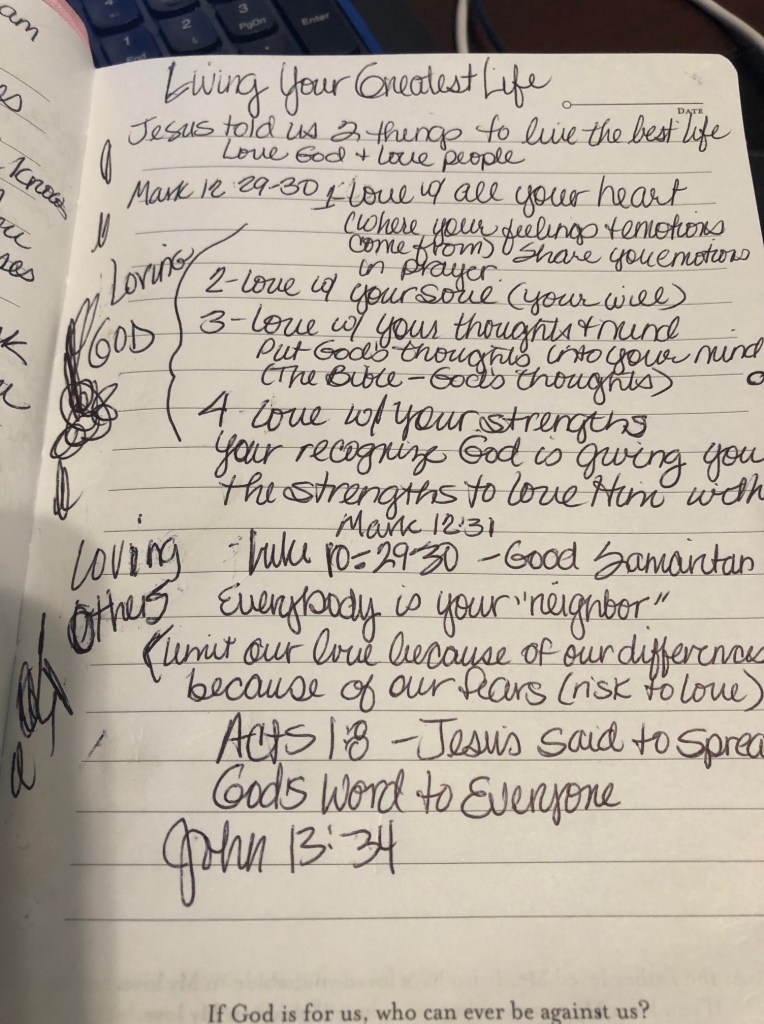 Living Your Greatest Life
DATE
Jesus told us 2 things to live the best life
Love God + love people
Mark 12:29-30 1 Love w/ all your heart
(where your feelings + emotions
come from) Share you emotions
in prayer.
Loving GOD
2-love w/ your soul (your will)
3-love w/ your thoughts + mind
Put God's thoughts into your mind
(The Bible - God's thoughts)
4 love w/ your strengths
your recognize God is giving you
the strengths to love Him with
Mark 12:31
Loving Others - Luke 10:29-30 - Good Samaritan
Everybody is your "neighbor"
(limit our love because of our differences
because of our fears (risk to love)
Acts 1:8 - Jesus said to sprea
God's Word to Everyone
John 13:34
If God is for us, who can ever be against us?
am
es
know
k
1
2
3
PgDn
Enter